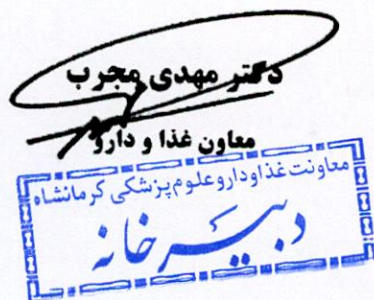 دکتر مهدی مجرب
معاون غذا و دارو
معاونت غذا و دارو علوم پزشکی کرمانشاه
دبیرخانه